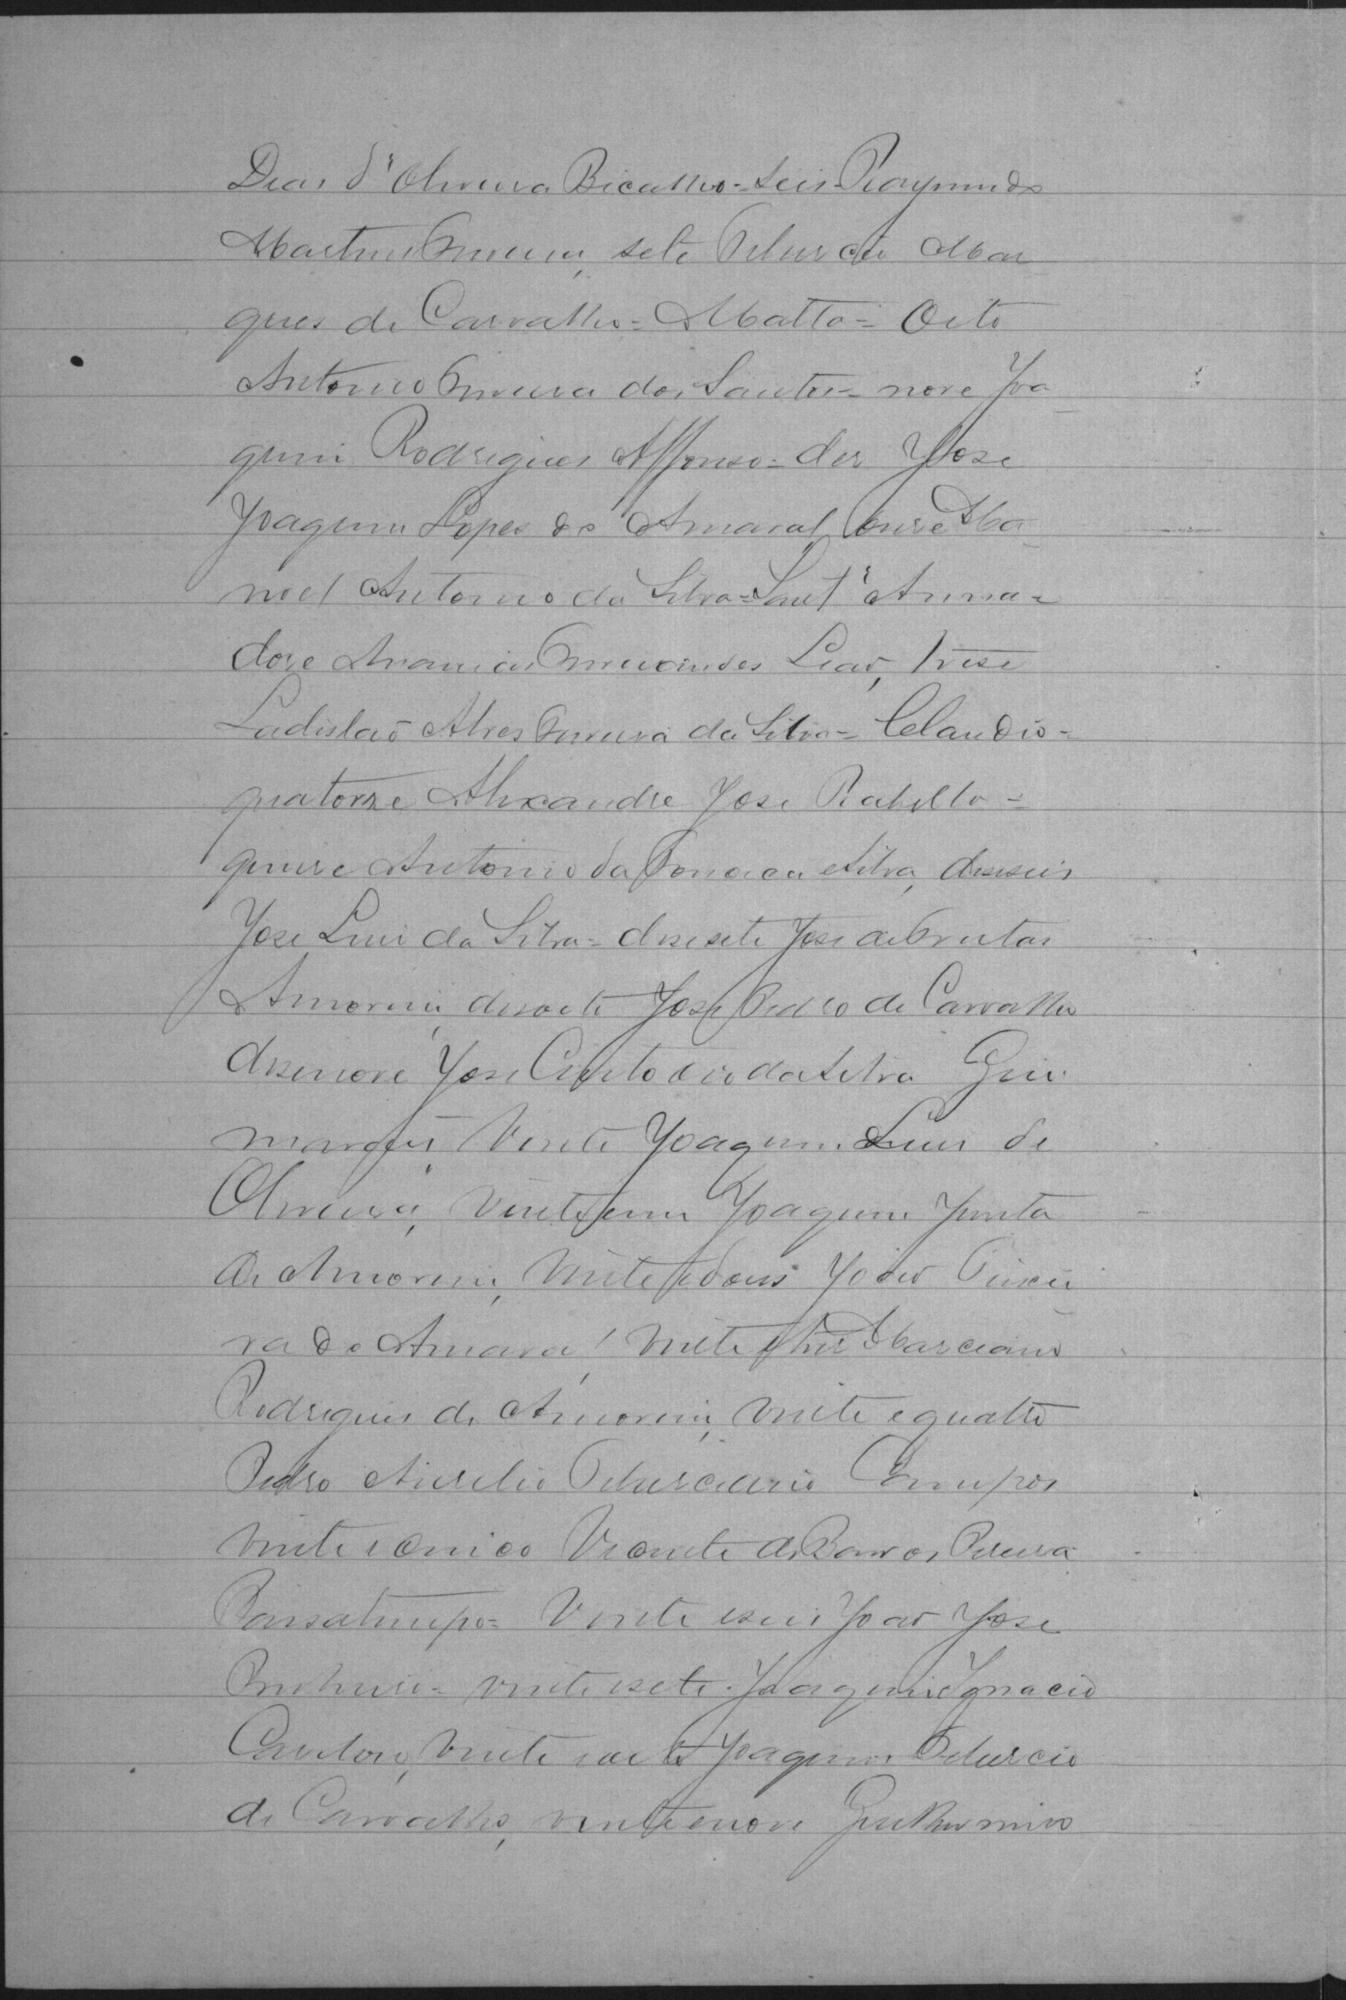 Dias d'Oliveira Bicalho = Seis Raymundo
Martins Ferreira, sete Tiburcio Mar
ques de Carvalho = Matto = Oito
Antonio Ferreira dos Santos = nove Joa
quim Rodrigues Affonso = des Jose
Joaquim Lopes do Amaral, onze Ma
noel Antonio da Silva = Sant'Anna =
doze Ananias Leão, trese
Ladislaô Alves Ferreira da Silva = Claudio =
quatorze Alexandre Jose Rabello =
quinze Antonio da Fonseca e Silva, deseseis
Jose Luis da Silva = desesete Jose de Freitas
Amorim, desoito Jose Pedro de Carvalho
desenove Jose Custodio da Silva Gui
marães Vinte Joaquim Luis de
Oliveira, Vinte e um Joaquim
de Amorim, Vinte e dous João Teixei
ra do Amaral, Vinte e tres Marciano
Rodrigues de Amorim, vinte e quatro
Pedro Aurelio Tiburciano Campos
vinte e cinco Vicente de Barros Pereira
Vinte e seis João Jose
Pinheiro = vinte e sete Joaquim Ignacio
Cardoso, vinte e oito Joaquim Tiburcio
de Carvalho, vinte e nove Guilhermino